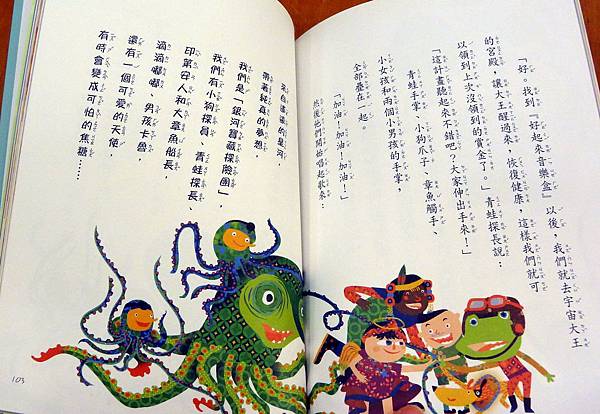 「好。找到『好起來音樂盒』以後，我們就去宇宙大王
的宮殿，讓大王醒過來，恢復健康，這樣我們就可
以領到上次沒領到的賞金了。」青蛙探長說：
「這計畫聽起來不錯吧？大家伸出手來！」
青蛙手掌、小狗爪子、章魚觸手、
小女孩和兩個小男孩的手掌，
全部疊在一起。
「加油！加油！加油！」
然後他們開始唱起歌來：
來自遙遠的星河，
帶著純真的夢想，
我們是「銀河寶藏探險團」，
我們有小狗探員、青蛙探長、
印第安人和大章魚船長、
滴滴嘟嘟、男孩卡魯
還有一個可愛的天使，
有時會變成可怕的焦糖……
103